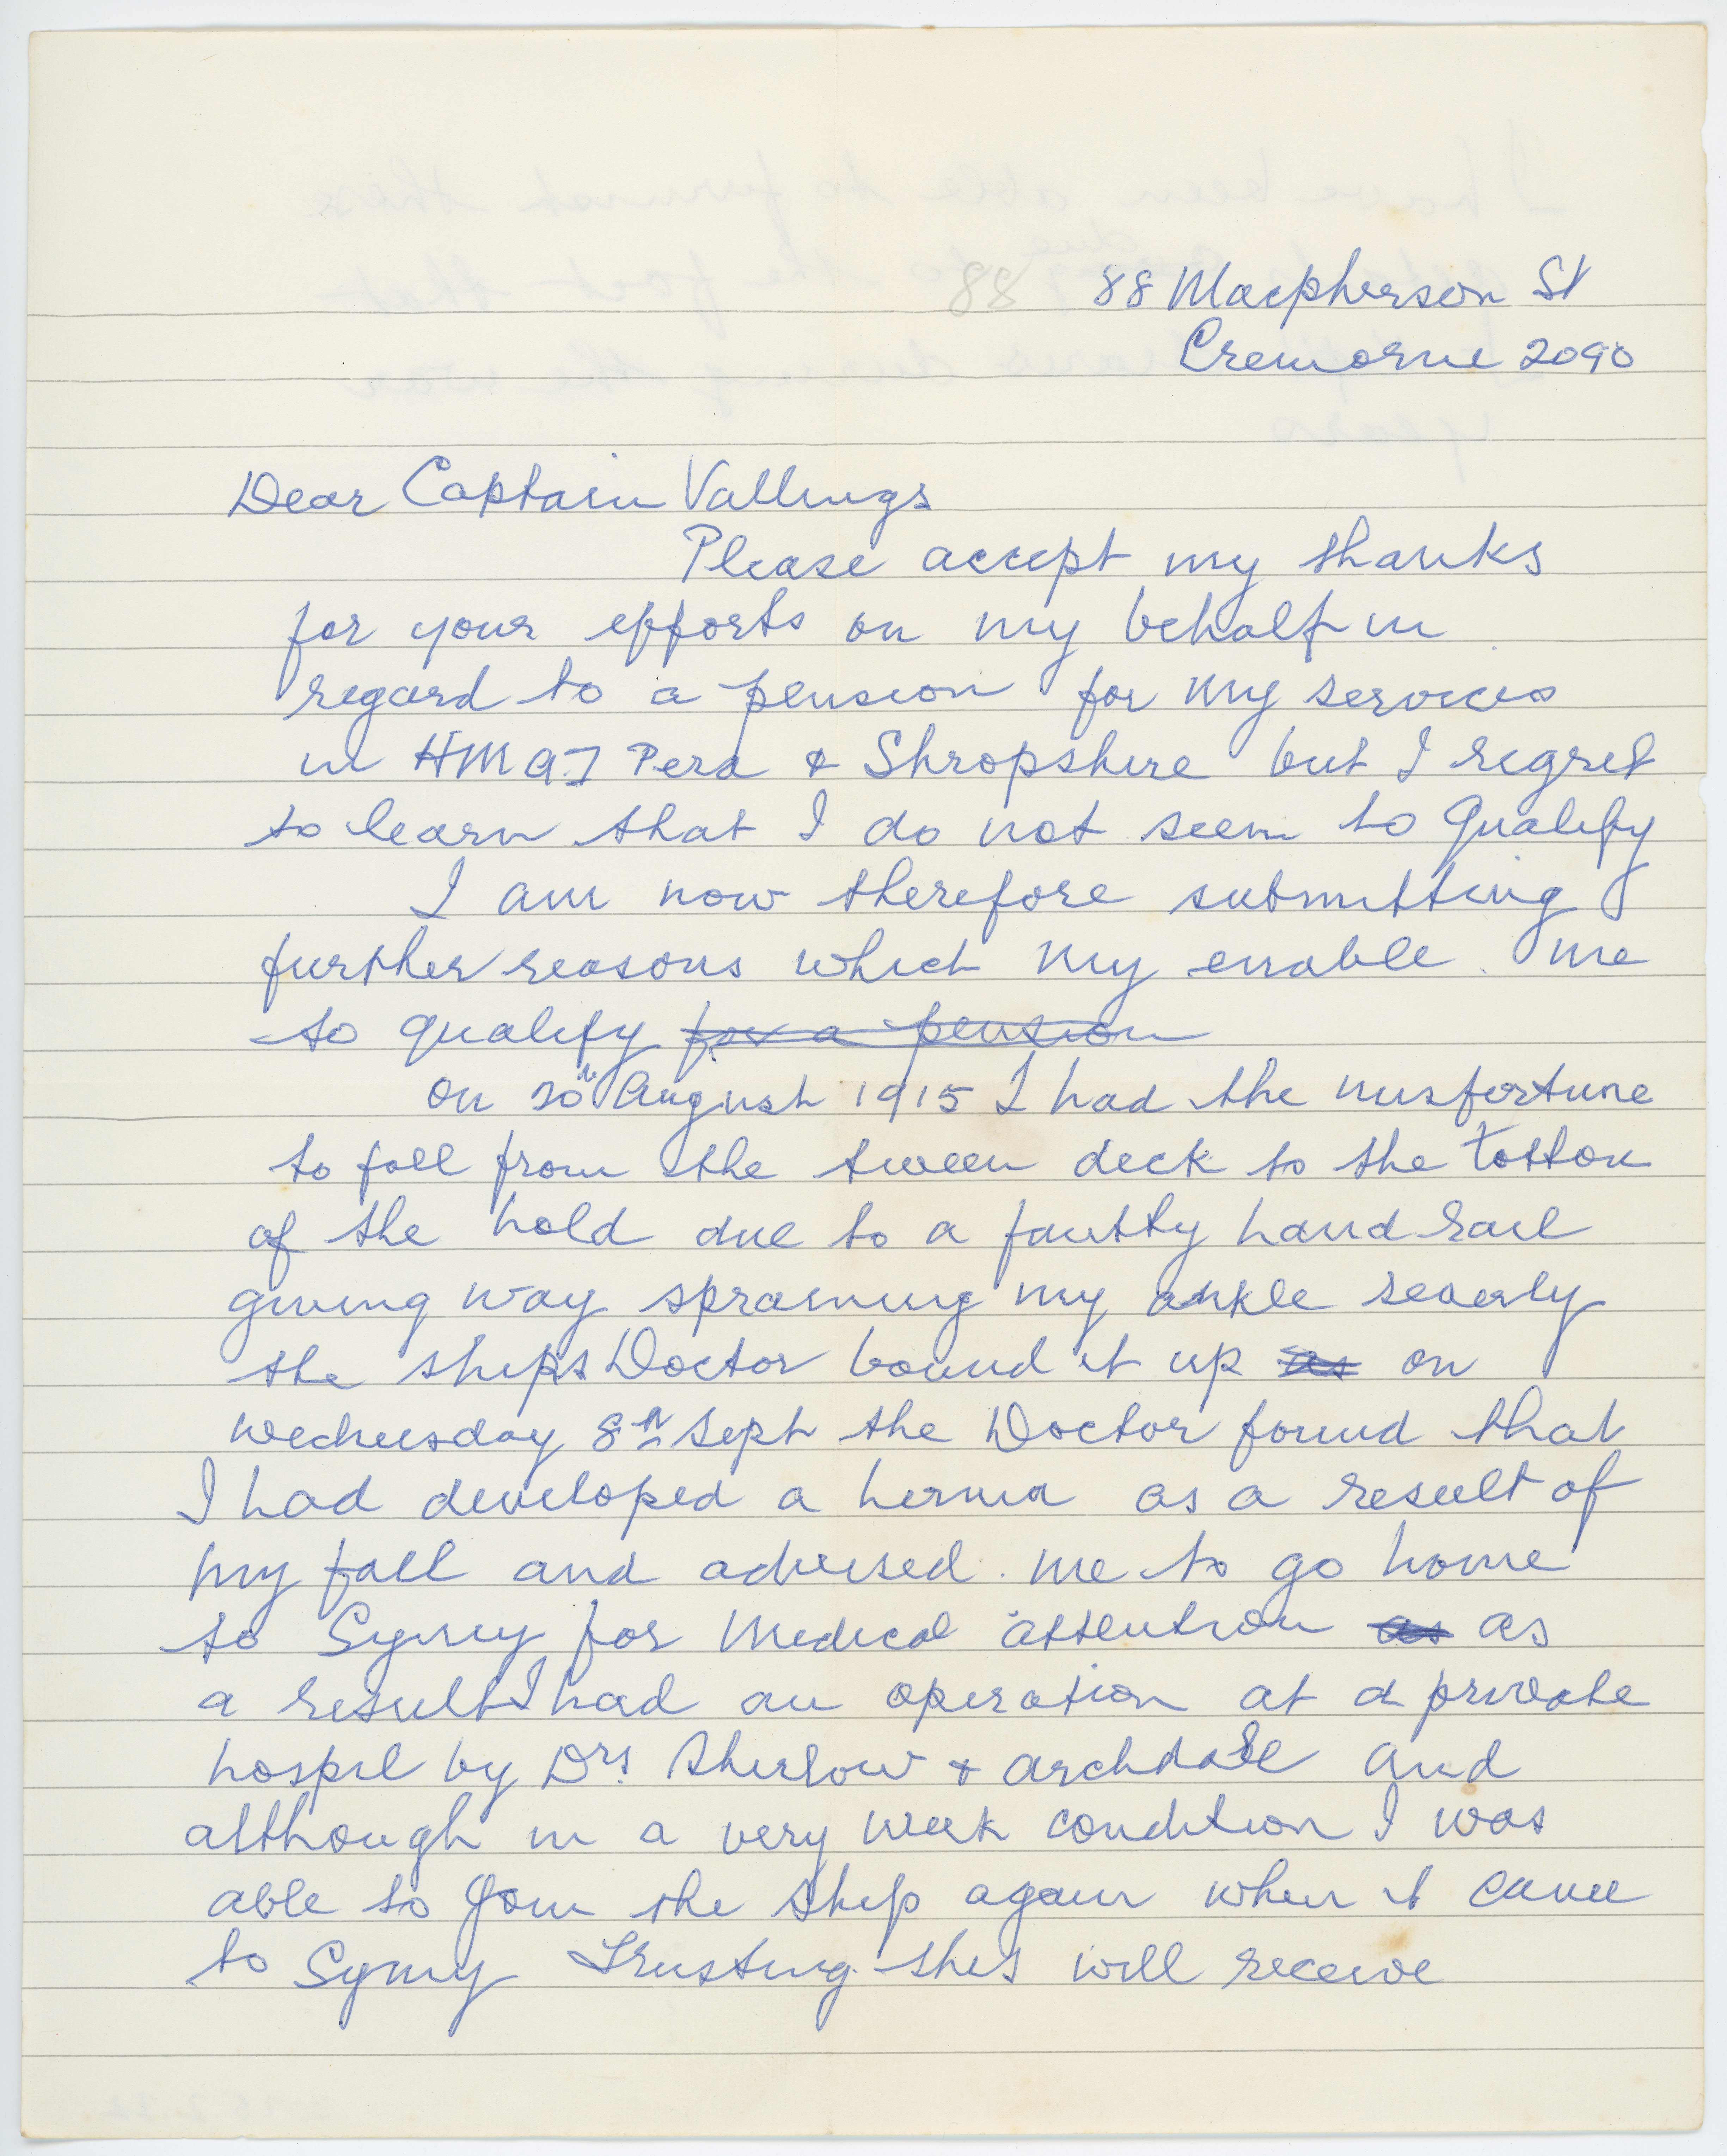 88 88 Macpherson St
Cremorne 2090
Dear Captain Vallings
Please accept my thanks
for your efforts on my behalf in
regard to a pension for my services
in HMAT Pera & Shropshire but I regret
to learn that I do not seem to qualify
I am now therefore submitting
further reasons which my enable me
to qualify for a pension
on 20th August 1915 I had the misfortune
to fall from the tween deck to the bottom
of the hold due to a faulty hand rail
giving way spraining my ankle severly
the ships Doctor bound it up as on
Wednesday 8th Sept the Doctor found that
I had developed a hernia as a result of
my fall and advised me to go home
to Sydney for Medical attention as as
a result I had an operation at a private
hospil by Drs. & Archdall and
although in a very week condition I was
able to join the ship again when it came
to Sydney Trusting this will receive